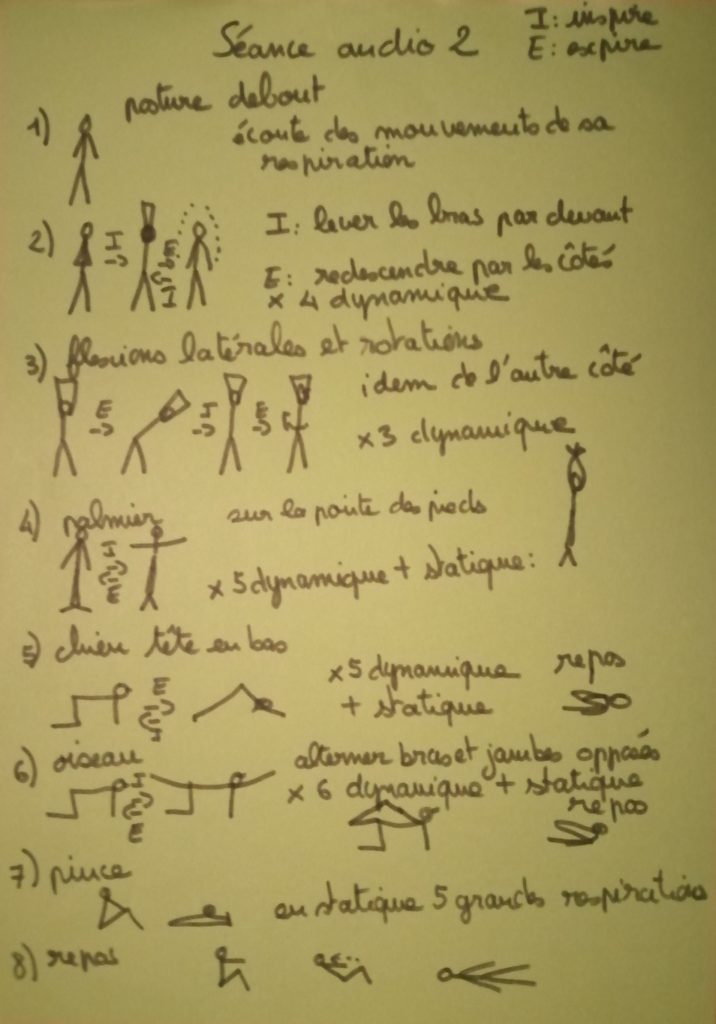 Séance audio 2
I: inspire
E: expire
1) posture debout
écoute des mouvements de sa
respiration
2) I E I
I: lever les bras par devant
E: redescendre par les côtés
x 4 dynamique
3) flexions latérales et rotations
E I E
idem de l'autre côté
x3 dynamique
4) palmier
sur la pointe des pieds
I E
x 5 dynamique + statique:
5) chien tête en bas
E I
x5 dynamique
+ statique
repos
6) oiseau
alterner bras et jambes opposés
I E
x 6 dynamique + statique
repos
7) pince
en statique 5 grandes respirations
8) repos